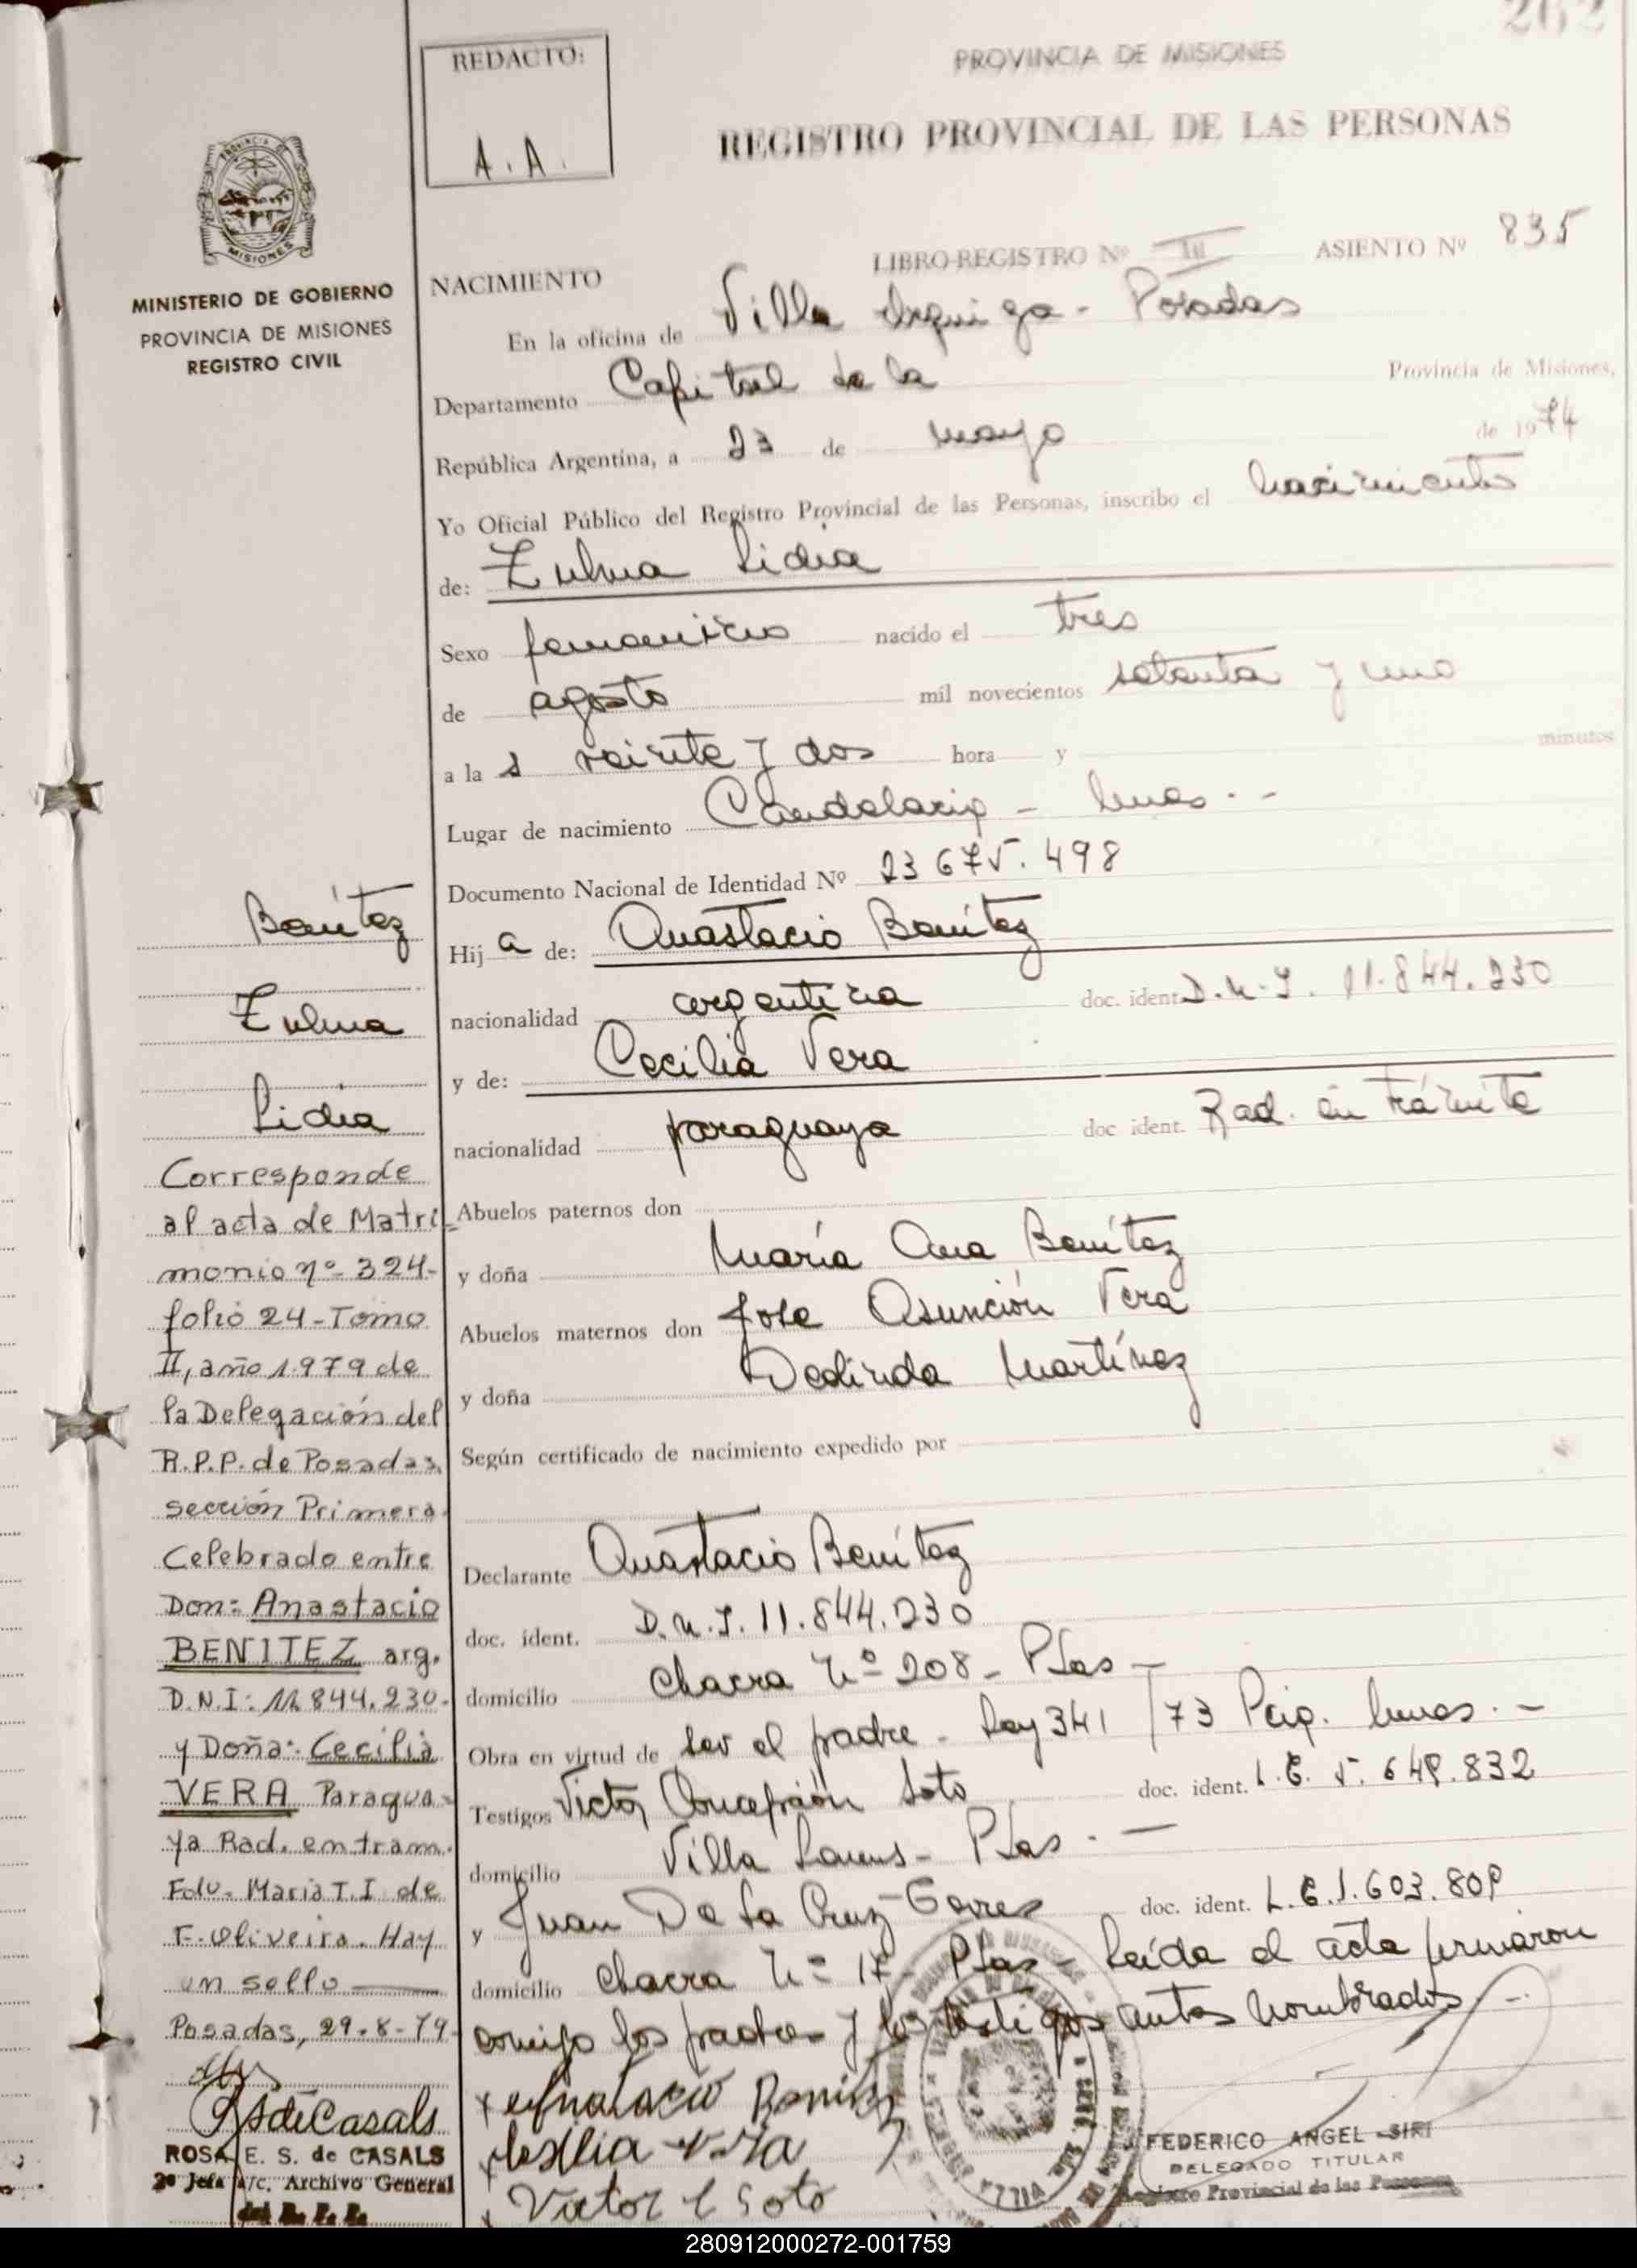 262
REDACTO:
A. A.
PROVINCIA DE MISIONES
REGISTRO PROVINCIAL DE LAS PERSONAS
PROVINCIA DE
MISIONES
MINISTERIO DE GOBIERNO
PROVINCIA DE MISIONES
REGISTRO CIVIL
LIBRO-REGISTRO Nº III ASIENTO Nº 835
NACIMIENTO
En la oficina de Villa Urquiza - Posadas
Departamento Capital de la Provincia de Misiones,
República Argentina, a 23 de mayo de 1974
Yo Oficial Público del Registro Provincial de las Personas, inscribo el nacimiento
de: Zulma Lidia
Sexo femenino nacido el tres
de agosto mil novecientos setenta y uno
a la s veinte y dos hora y minutos
Lugar de nacimiento Candelaria - Mnes. -
Documento Nacional de Identidad Nº 23675.498
Hij a de: Anastacio Benítez
nacionalidad argentina doc. ident. D.N.I. 11.844.230
y de: Cecilia Vera
nacionalidad paraguaya doc ident. Rad. en trámite
Abuelos paternos don
y doña María Ana Benítez
Abuelos maternos don José Asunción Vera
y doña Deolinda Martínez
Según certificado de nacimiento expedido por
Declarante Anastacio Benítez
doc. ident. D.N.I. 11.844.230
domicilio Chacra Nº 208 - Pdas -
Obra en virtud de ser el padre - Ley 341/73 Pcia. Mnes. -
Testigos Victor Concepción Soto doc. ident. L.E. 5.649.832
domicilio Villa Lanus - Pdas. -
y Juan De La Cruz doc. ident. L.E.1.603.809
domicilio Chacra Nº 17 - Pdas - Leída el acta firmaron
conmigo los padres y los testigos antes nombrados. -
x Anastacio Benitez
x Cecilia Vera
x Victor C Soto
FEDERICO ANGEL SIRI
DELEGADO TITULAR
Registro Provincial de las Personas
Benítez
Zulma
Lidia
Corresponde
al acta de Matri-
monio nº 324-
folio 24-Tomo
II, año 1.979 de
la Delegación del
R.P.P. de Posadas,
sección Primera
Celebrado entre
Don: Anastacio
BENITEZ arg.
D.N.I: 11.844.230-
y Doña: Cecilia
VERA Paragua-
ya Rad. en tram.
Fdo. Maria T. I de
F. Oliveira. Hay
un sello
Posadas, 29-8-79-
RSdeCasals
ROSA E. S. de CASALS
2º Jefa a/c. Archivo General
del R. P. P.
280912000272-001759